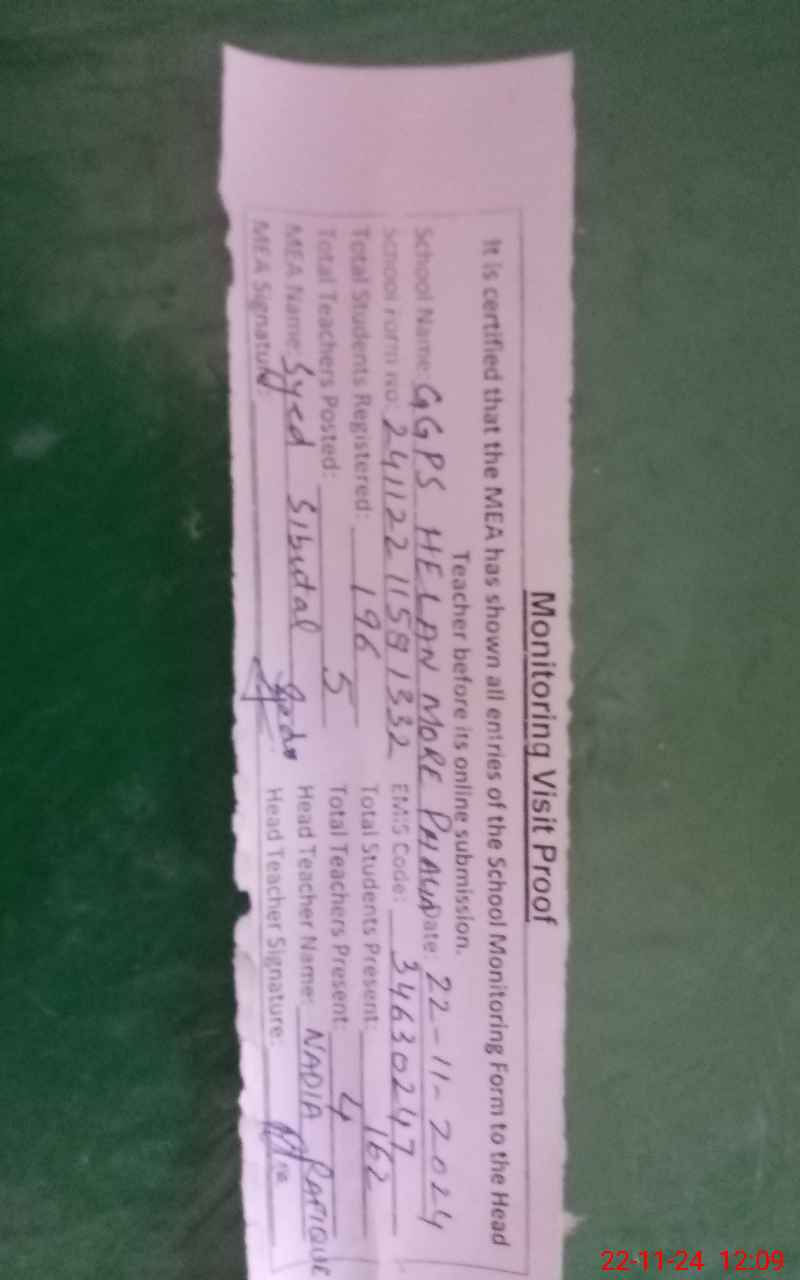 Monitoring Visit Proof
It is certified that the MEA has shown all entries of the School Monitoring Form to the Head
Teacher before its online submission.
School Name: GGPS HELAN MORE Date: 22-11-2024
School Form No: 2411221581332 EMIS Code: 34630247
Total Students Registered: 196 Total Students Present: 162
Total Teachers Posted: 5 Total Teachers Present: 4
MEA Name: Syed Head Teacher Name: NADIA RAFIQUE
MEA Signature: Head Teacher Signature:
22-11-24 12:09